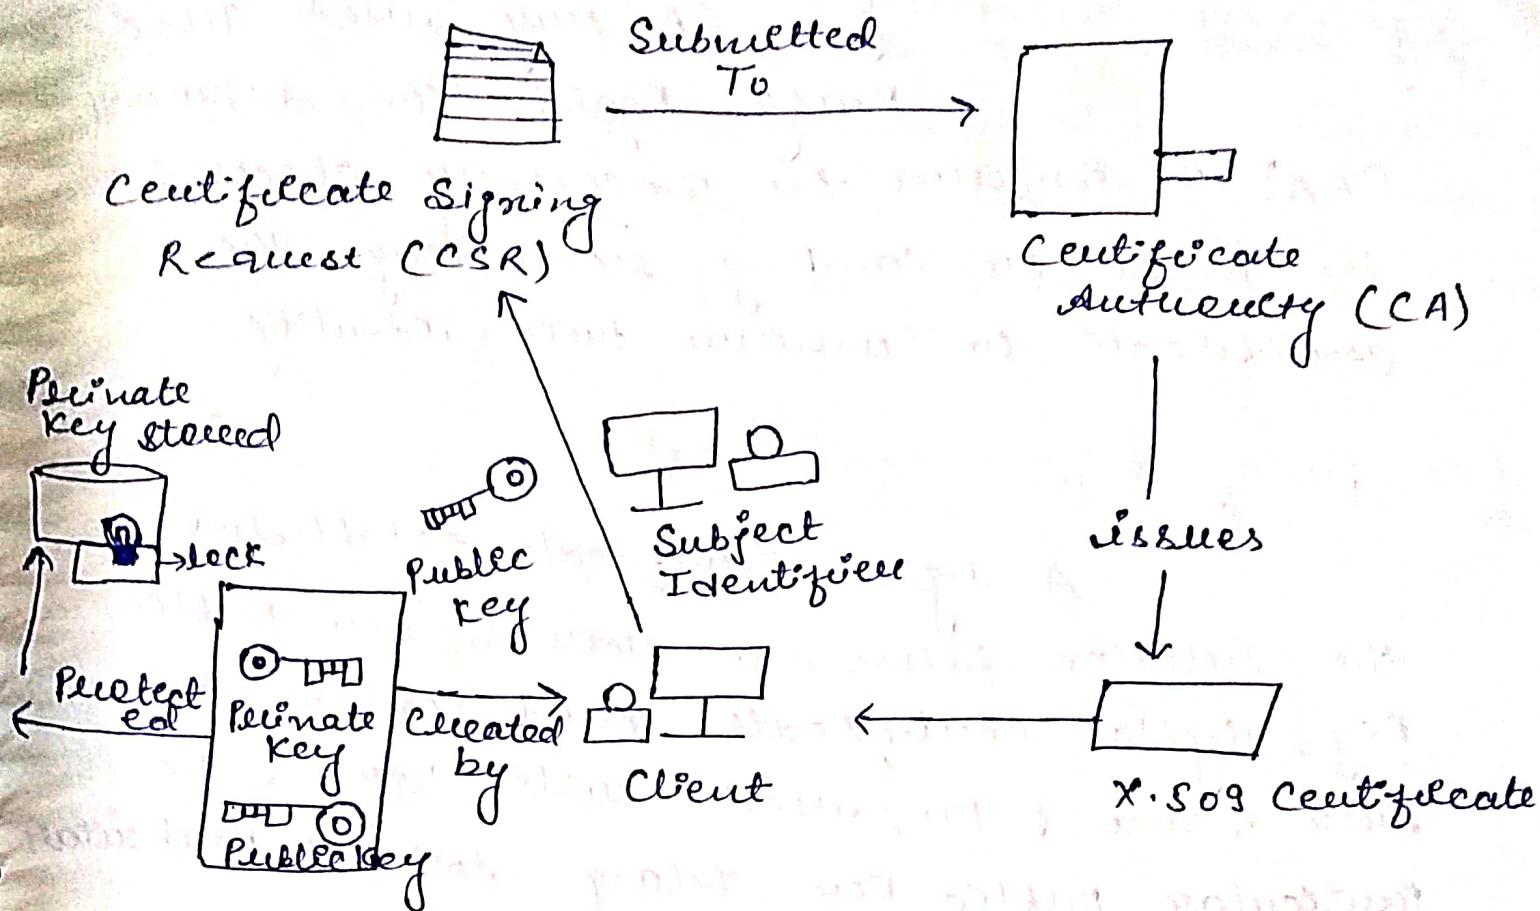 Submitted
To
Certificate Signing
Request (CSR)
Certificate
Authority (CA)
Private
Key stored
lock
Public
Key
Subject
Identifier
issues
Protect
ed
Private
Key
Public Key
Created
by
Client
X.509 Certificate